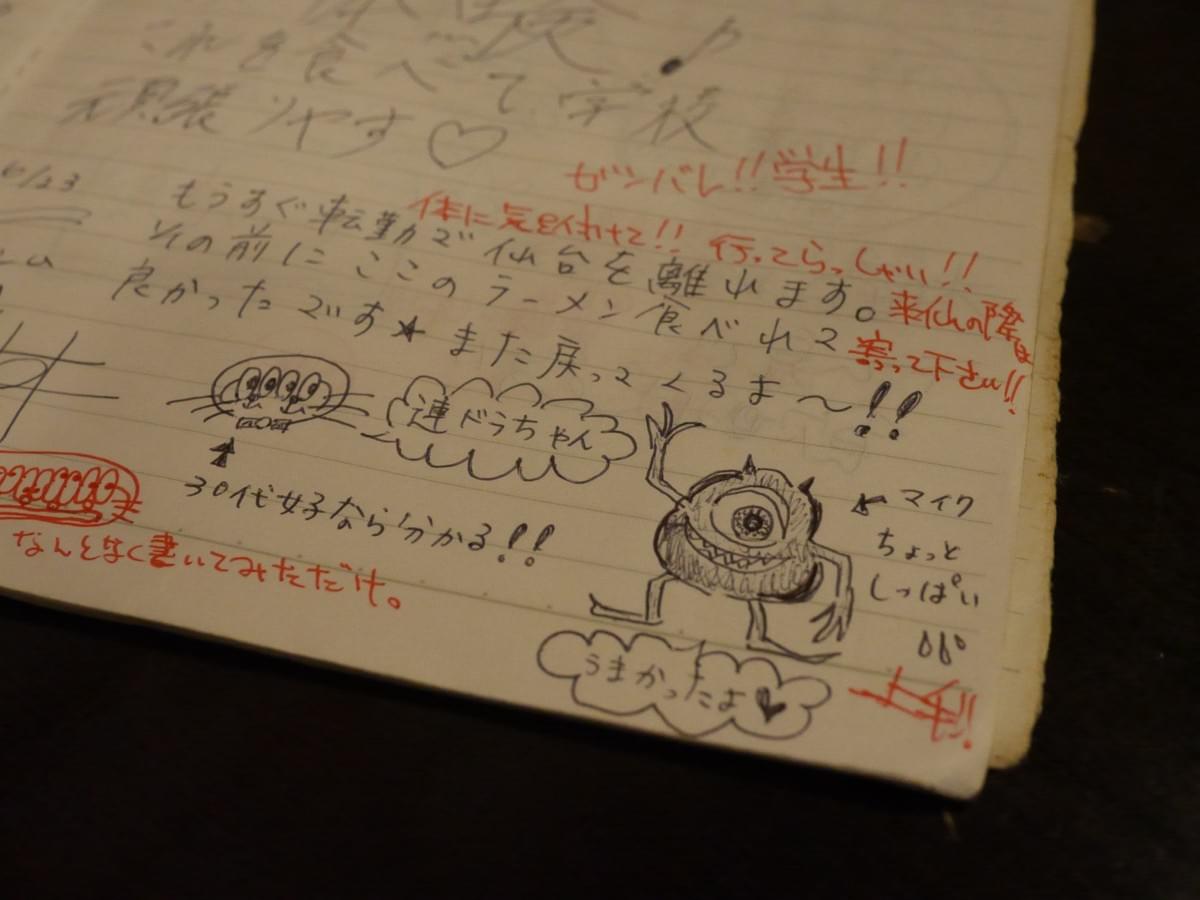 これを食べて学校
頑張りやす♡
ガンバレ!!学生!!
6/23
もうすぐ転勤で仙台を離れます。
体に気を付けて!! 行ってらっしゃい!!
その前にここのラーメン食べれて
来仙の際は
寄って下さい!!
良かったです★また戻ってくるよ〜!!
連ドラちゃん
30代女子なら分かる!!
なんとなく書いてみただけ。
マイク
ちょっと
しっぱい
うまかったよ♥